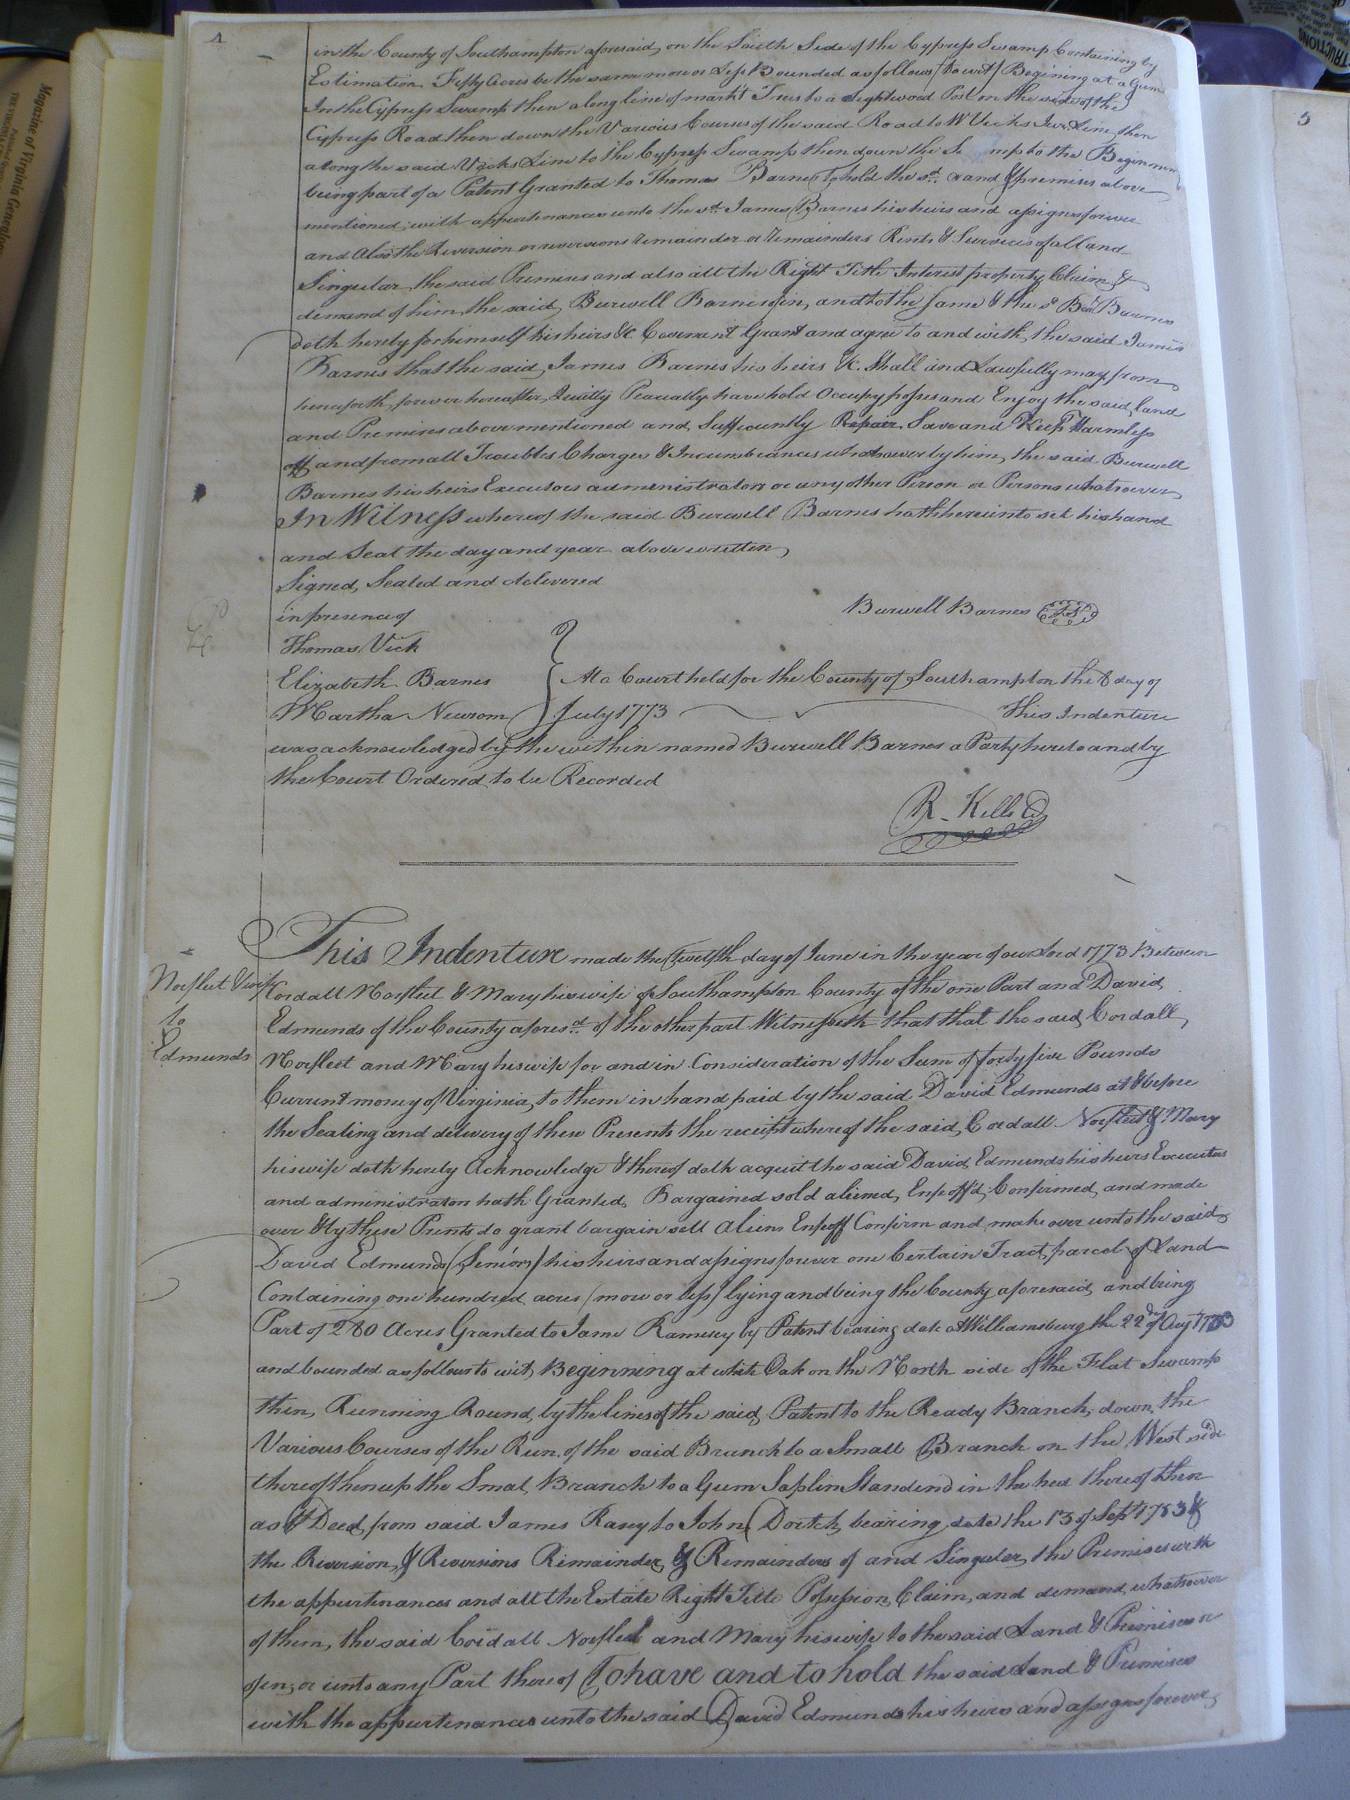 4
in the County of Southampton aforesaid, on the South Side of the Cypress Swamp Containing by
Estimation Fifty Acres be the same more or Less Bounded as follows (to wit) Begining at a Gum
In the Cypress Swamp then along line of markt Trees to a Lightwood Post on the side of the
Cypress Road then down the Various Courses of the said Road to Wm Vicks Junr Line then
along the said Vicks Line to the Cypress Swamp then down the S mp to the Beginning
being part of a Patent Granted to Thomas Barnes to hold the sd. Land & premises above
mentioned; with appurtenances unto the sd. James Barnes his heirs and assigns forever
and also the Reversion or reversions remainder or remainders Rents & Services of all and
Singular the said Premises and also all the Right Title Interest property Claim &
demand of him the said Burwell Barnes in, and to the same & the sd Bur Barnes
doth hereby for himself his heirs &c Covenant Grant and agree to and with the said James
Barnes that the said James Barnes his heirs &c. Shall and Lawfully may from
henceforth forever hereafter Quietly Peaceably have hold Occupy posses and Enjoy the said land
and Premises above mentioned and Sufficiently Repair Save and Keep Harmless
off and from all Troubles Charges & Incumbrances whatsoever by him, the said Burwell
Barnes his heirs Executors administrators or any other Person or Persons whatsoever
In Witness whereof the said Burwell Barnes hath hereunto set his hand
and Seal the day and year above written
Signed, Sealed and delivered
in presence of
Burwell Barnes L.S.
Thomas Vick
Elizabeth Barnes
Martha Newsom
At a Court held for the County of Southampton the 8 day of
July 1773 This Indenture
was acknowledged by the within named Burwell Barnes a Party hereto and by
the Court Ordered to be Recorded
R. Kello
This Indenture made the Twelfth day of June in the year of our Lord 1773 Between
Norfleet & wife
to
Edmunds
Cordall Norfleet & Mary his wife of Southampton County of the one Part and David
Edmunds of the County aforesd. of the other part Witnesseth that that the said Cordall
Norfleet and Mary his wife for and in Consideration of the Sum of forty five Pounds
Current money of Virginia, to them in hand paid by the said David Edmunds at & before
the Sealing and delivery of these Presents the receipt whereof the said Cordall Norfleet & Mary
his wife doth hereby Acknowledge & thereof doth acquit the said David Edmunds his heirs Executors
and administrators hath Granted, Bargained sold aliened, Enfeoff'd, Confirmed, and made
over & by these Prents do grant bargain sell Aliens Enfeoff Confirm and make over unto the said
David Edmunds (Senior) his heirs and assigns forever one Certain Tract, parcel of Land
Containing one hundred acres (more or less) lying and being the County aforesaid, and being
Part of 280 Acres Granted to Jame Ramsey by Patent bearing date at Williamsburg the 22 d of Augt
and bounded as follows to wit, Beginning at white Oak on the North side of the Flat Swamp
then, Running Round, by the lines of the said Patent to the Ready Branch, down, the
Various Courses of the Run, of the said Branch to a Small Branch on the West side
thereof then up the Smal Branch to a Gum Saplin Standind in the hed thereof then
as Deed, from said James Rasey to John Dortch, bearing date the 13 of Sept 1753 &
the Reversion, & Reversions Remainder & Remainders of and Singuler the Premises with
the appurtenances and all the Estate Right Title Possession, Claim, and demand, whatsoever
of them, the said Cordall Norfleet and Mary his wife to the said Land & Premises or
of in, or unto any Part thereof To have and to hold the said Land & Premises
with the appurtenances unto the said David Edmunds his heirs and assigns forever,
5
Magazine of Virginia Genealogy